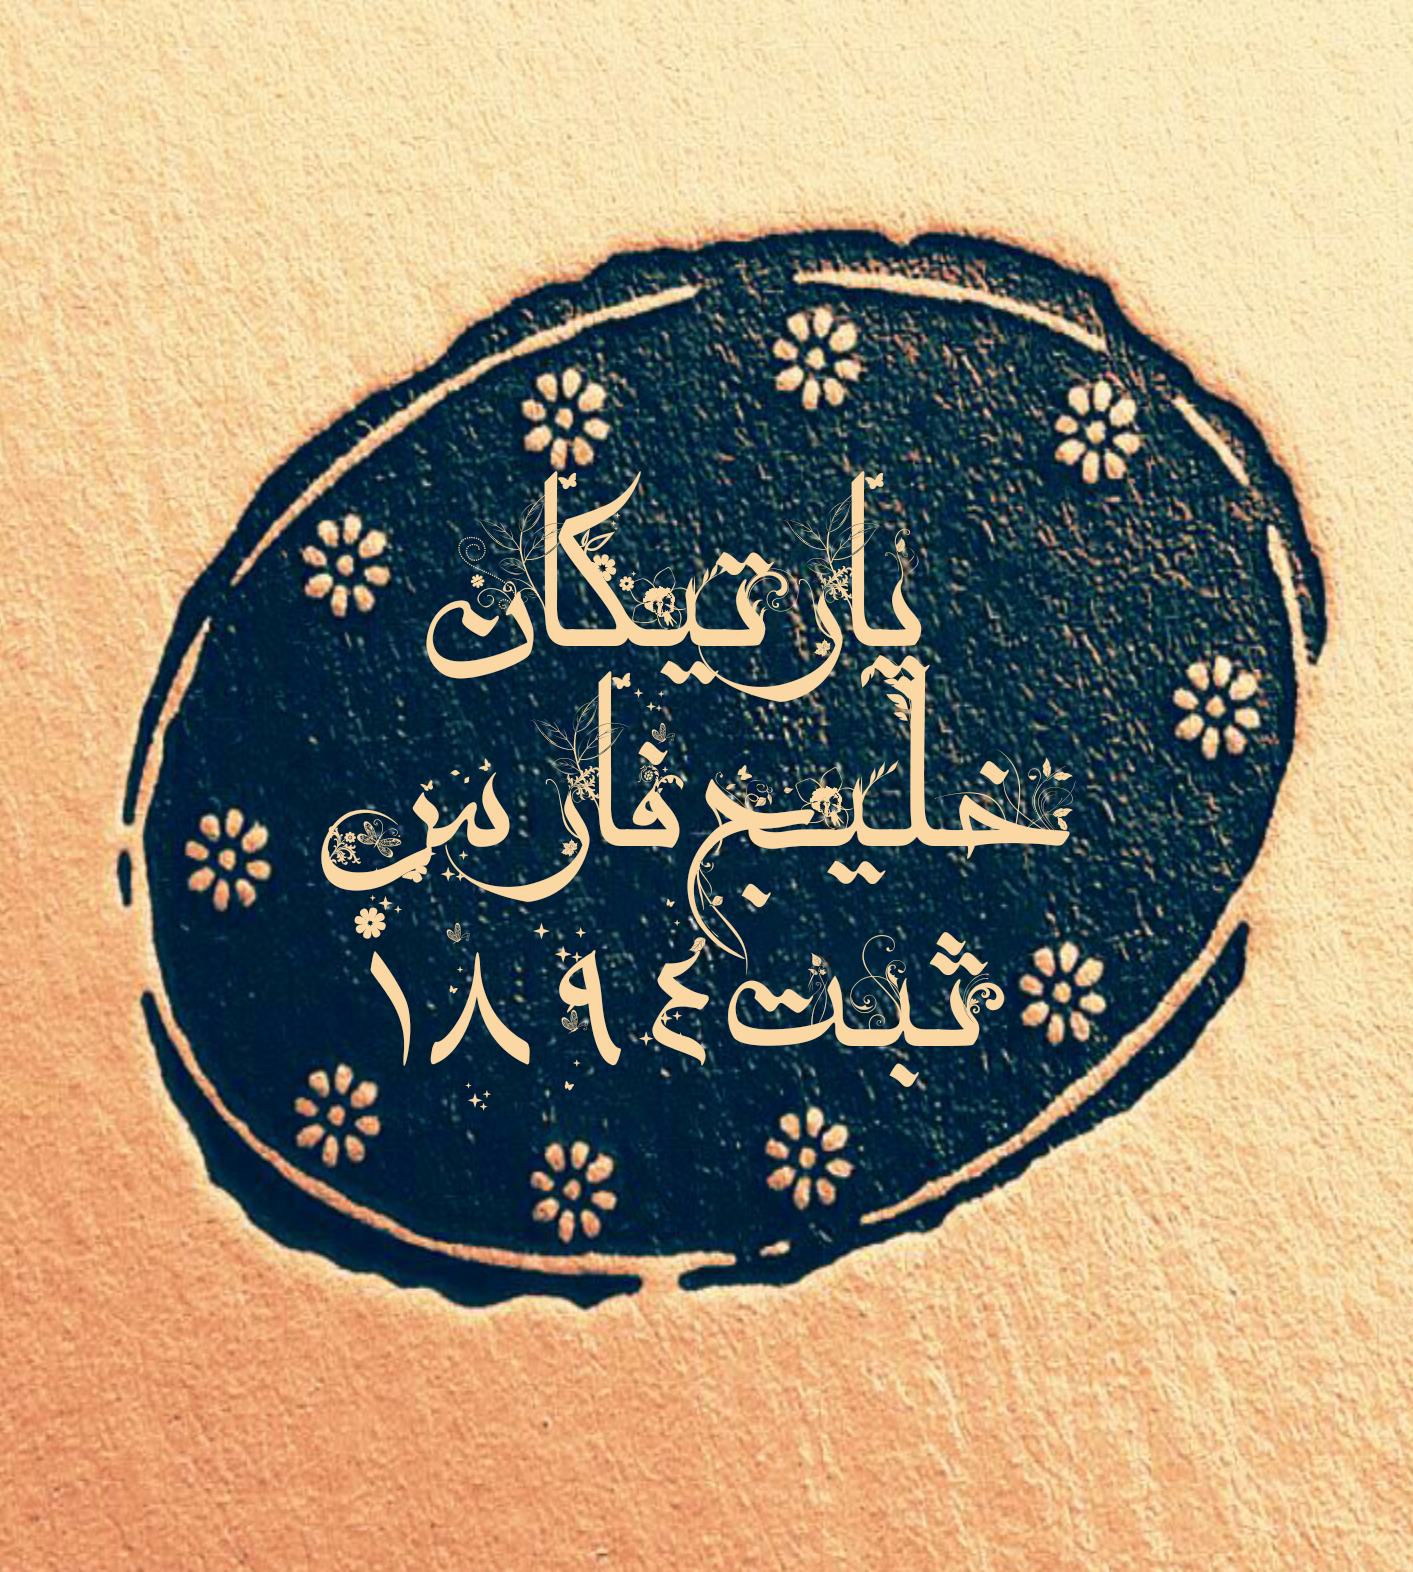 پارتیکان
خلیج فارس
ثبت ۱۸۹٤